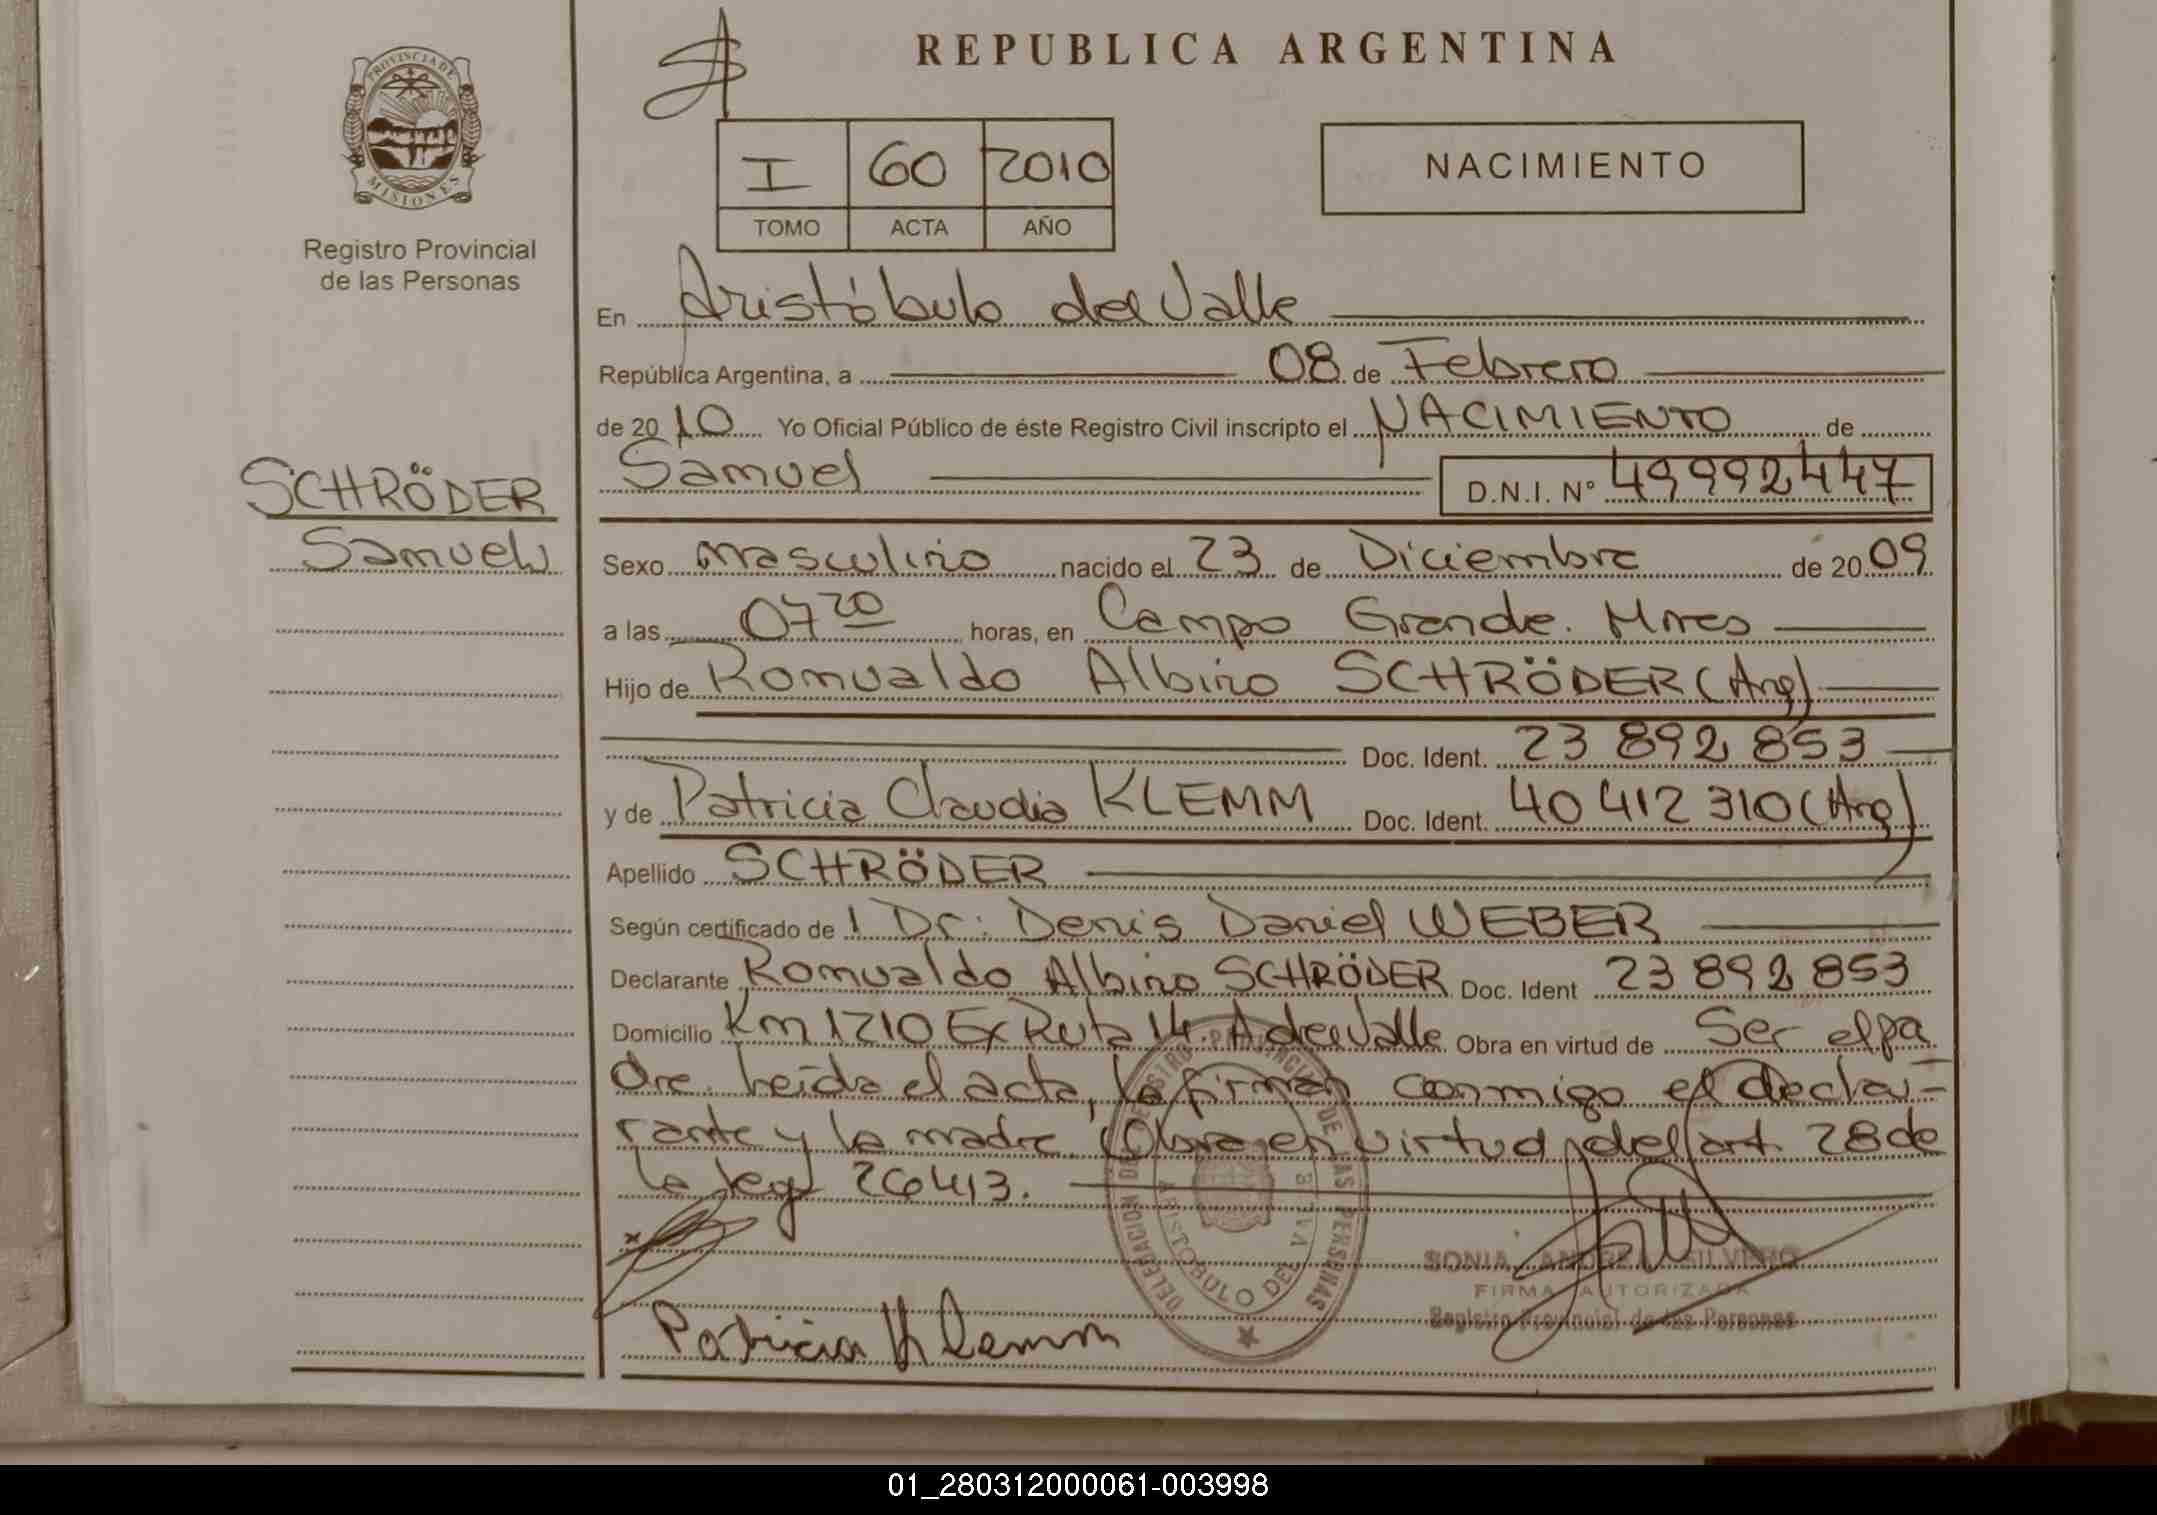 REPUBLICA ARGENTINA
PROVINCIA DE
MISIONES
Registro Provincial
de las Personas
I 60 2010
TOMO ACTA AÑO
NACIMIENTO
En Aristóbulo del Valle
República Argentina, a 08 de Febrero
de 2010 Yo Oficial Público de éste Registro Civil inscripto el NACIMIENTO de
Samuel D.N.I. N° 49992447
SCHRÖDER
Samuel
Sexo masculino nacido el 23 de Diciembre de 2009
a las 07 20 horas, en Campo Grande. Mnes
Hijo de Romualdo Albino SCHRÖDER (Arg)
Doc. Ident. 23 892 853
y de Patricia Claudia KLEMM Doc. Ident. 40 412 310 (Arg)
Apellido SCHRÖDER
Según certificado de 1 Dr: Denis Daniel WEBER
Declarante Romualdo Albino SCHRÖDER Doc. Ident 23 892 853
Domicilio Km 1210 Ex Ruta 14. A del Valle Obra en virtud de Ser el pa
dre. Leída el acta, la firman conmigo el decla-
rante y la madre. Obra en virtud del art. 28 de
la ley 26413.
DELEGACION DEL REGISTRO PROVINCIAL DE LAS PERSONAS
ARISTOBULO DEL VALLE
SONIA ANDREA SILVERO
FIRMA AUTORIZADA
Registro Provincial de las Personas
Patricia Klemm
01_280312000061-003998